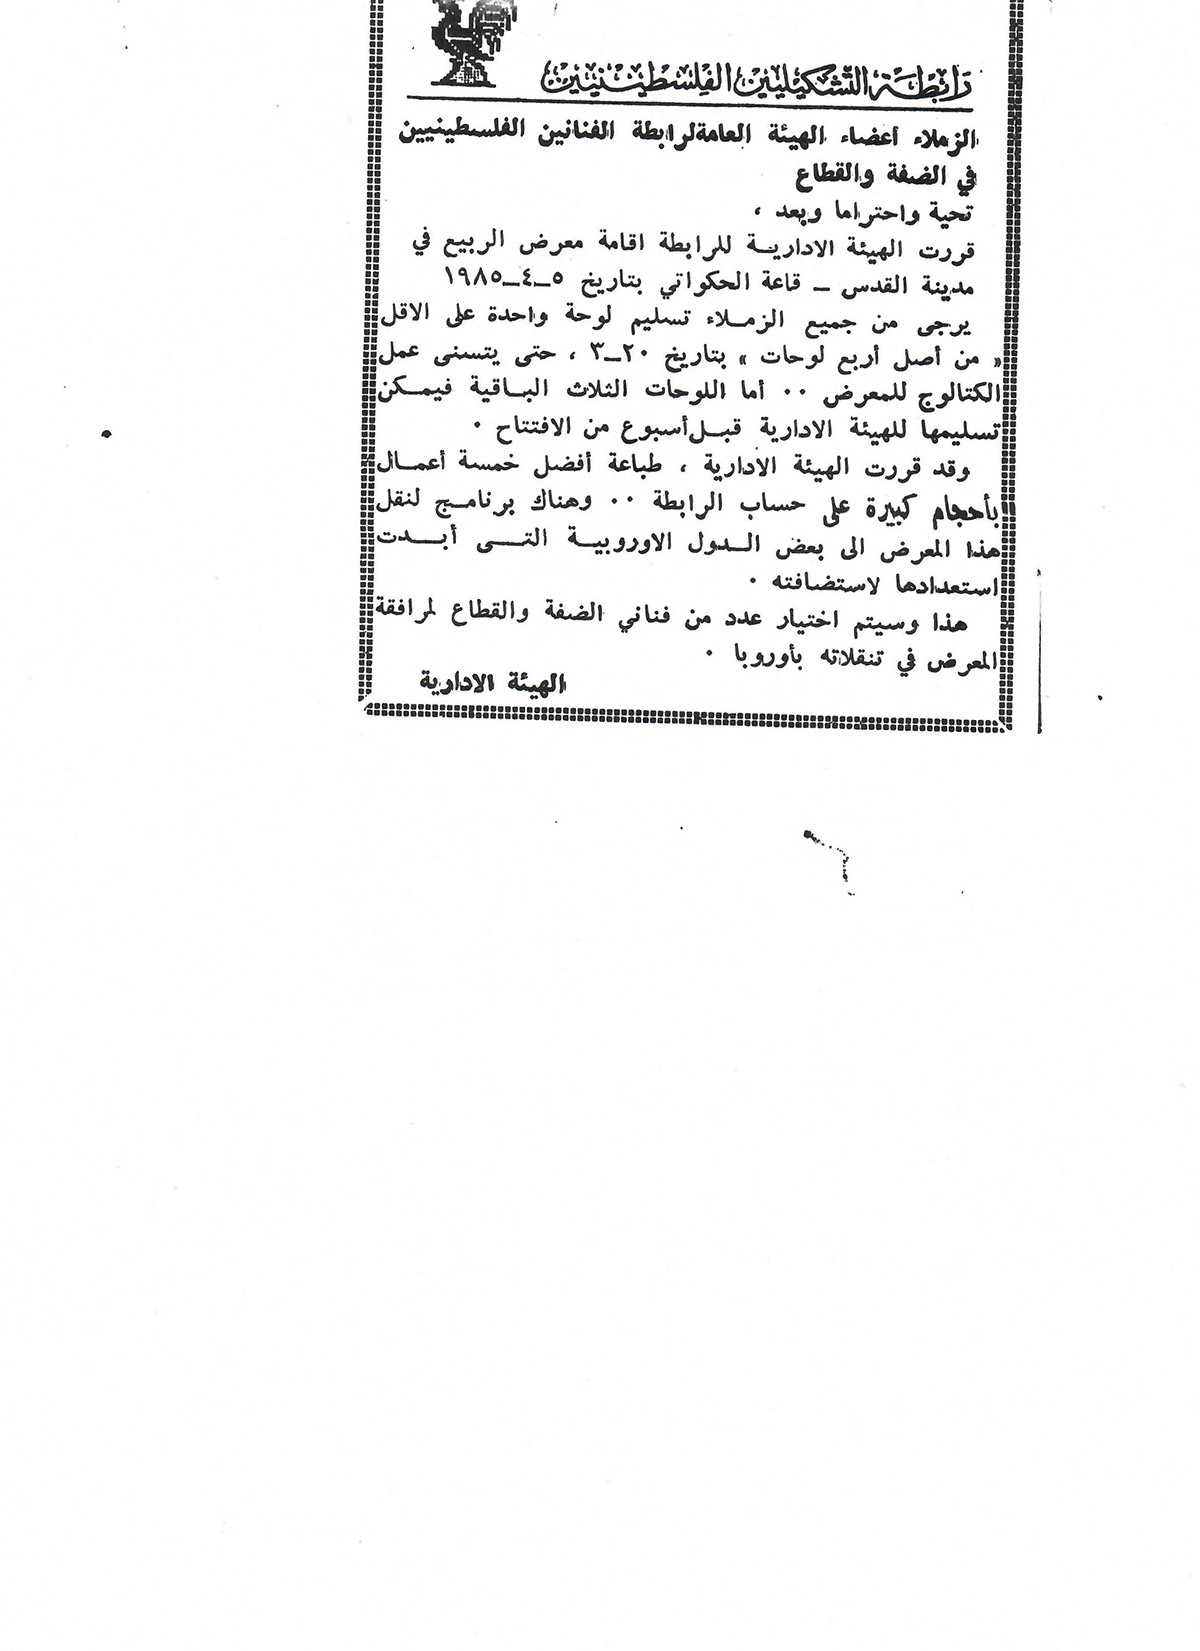 رابطة التشكيليين الفلسطينيين
الزملاء أعضاء الهيئة العامة لرابطة الفنانين الفلسطينيين
في الضفة والقطاع
تحية واحتراما وبعد ،
قررت الهيئة الادارية للرابطة اقامة معرض الربيع في
مدينة القدس – قاعة الحكواتي بتاريخ ٥–٤–١٩٨٥
يرجى من جميع الزملاء تسليم لوحة واحدة على الاقل
« من أصل أربع لوحات » بتاريخ ٢٠–٣ ، حتى يتسنى عمل
الكتالوج للمعرض ٠٠ أما اللوحات الثلاث الباقية فيمكن
تسليمها للهيئة الادارية قبل أسبوع من الافتتاح ٠
وقد قررت الهيئة الادارية ، طباعة أفضل خمسة أعمال
بأحجام كبيرة على حساب الرابطة ٠٠ وهناك برنامج لنقل
هذا المعرض الى بعض الدول الاوروبية التي أبدت
استعدادها لاستضافته ٠
هذا وسيتم اختيار عدد من فناني الضفة والقطاع لمرافقة
المعرض في تنقلاته بأوروبا ٠
الهيئة الادارية